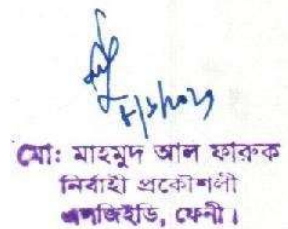 মো: মাহমুদ আল ফারুক
নির্বাহী প্রকৌশলী
এলজিইডি, ফেনী।